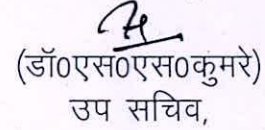 (डॉ0एस0एस0कुमरे)
उप सचिव,